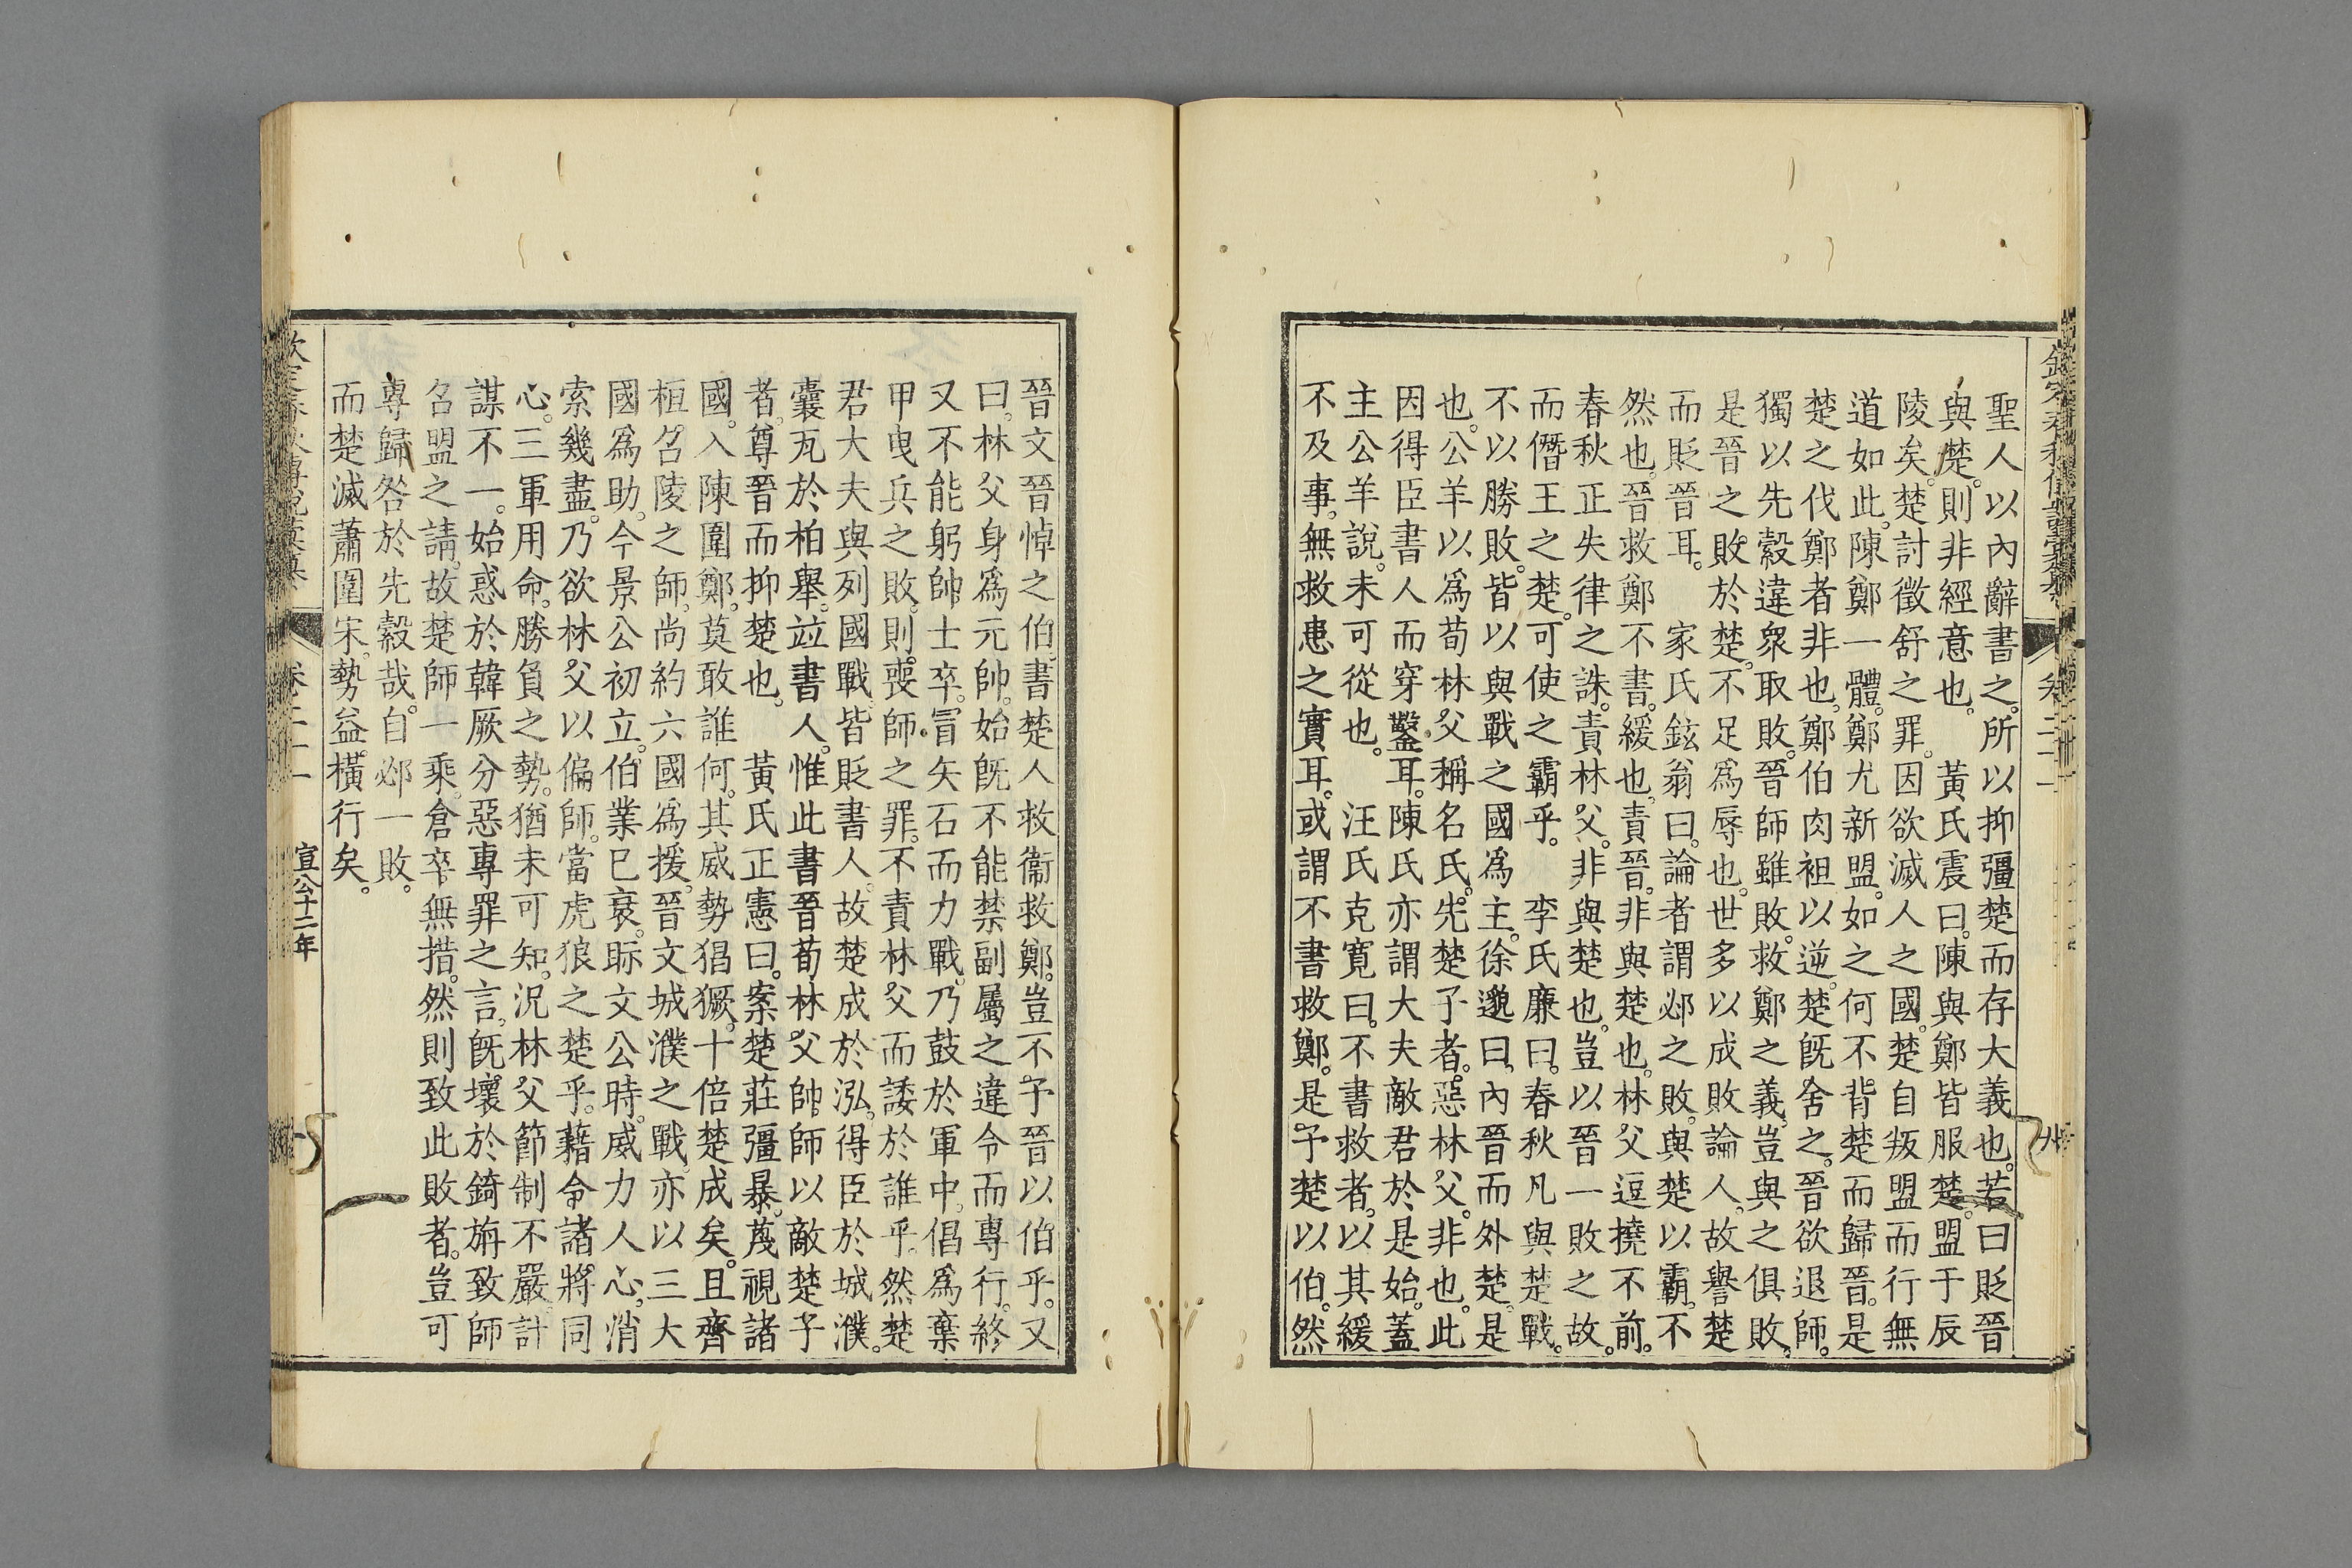 聖人以內辭書之。所以抑彊楚而存大義也。若曰貶晉
與楚。則非經意也。　黃氏震曰。陳與鄭皆服楚。盟于辰
陵矣。楚討徵舒之罪。因欲滅人之國。楚自叛盟而行無
道如此。陳鄭一體。鄭尤新盟。如之何不背楚而歸晉。是
楚之伐鄭者非也。鄭伯肉袒以逆。楚旣舍之。晉欲退師。
獨以先縠違衆取敗。晉師雖敗。救鄭之義。豈與之俱敗。
是晉之敗於楚。不足爲辱也。世多以成敗論人。故譽楚
而貶晉耳。　家氏鉉翁曰。論者謂邲之敗。與楚以霸。不
然也。晉救鄭不書。緩也。責晉。非與楚也。林父逗撓不前。
春秋正失律之誅。責林父。非與楚也。豈以晉一敗之故。
而僭王之楚。可使之霸乎。　李氏廉曰。春秋凡與楚戰。
不以勝敗。皆以與戰之國爲主。徐邈曰。內晉而外楚。是
也。公羊以爲荀林父稱名氏。先楚子者。惡林父。非也。此
因得臣書人而穿鑿耳。陳氏亦謂大夫敵君於是始。蓋
主公羊說。未可從也。　汪氏克寬曰。不書救者。以其緩
不及事。無救患之實耳。或謂不書救鄭。是予楚以伯。然
晉文晉悼之伯。書楚人救衞救鄭。豈不予晉以伯乎。又
曰。林父身爲元帥。始旣不能禁副屬之違令而專行。終
又不能躬帥士卒。冒矢石而力戰。乃鼓於軍中。倡爲棄
甲曳兵之敗。則喪師之罪。不責林父而諉於誰乎。然楚
君大夫與列國戰。皆貶書人。故楚成於泓。得臣於城濮。
囊瓦於柏舉。竝書人。惟此書晉荀林父帥師以敵楚子
者。尊晉而抑楚也。　黃氏正憲曰。案楚莊彊暴。蔑視諸
國。入陳圍鄭。莫敢誰何。其威勢猖獗。十倍楚成矣。且齊
桓召陵之師。尚約六國爲援。晉文城濮之戰。亦以三大
國爲助。今景公初立。伯業已衰。眎文公時。威力人心。消
索幾盡。乃欲林父以偏師。當虎狼之楚乎。藉令諸將同
心。三軍用命。勝負之勢。猶未可知。況林父節制不嚴。計
謀不一。始惑於韓厥分惡專罪之言。旣壞於錡旃致師
召盟之請。故楚師一乘。倉卒無措。然則致此敗者。豈可
專歸咎於先縠哉。自邲一敗。
而楚滅蕭圍宋。勢益橫行矣。
卷二十一
宣公十二年